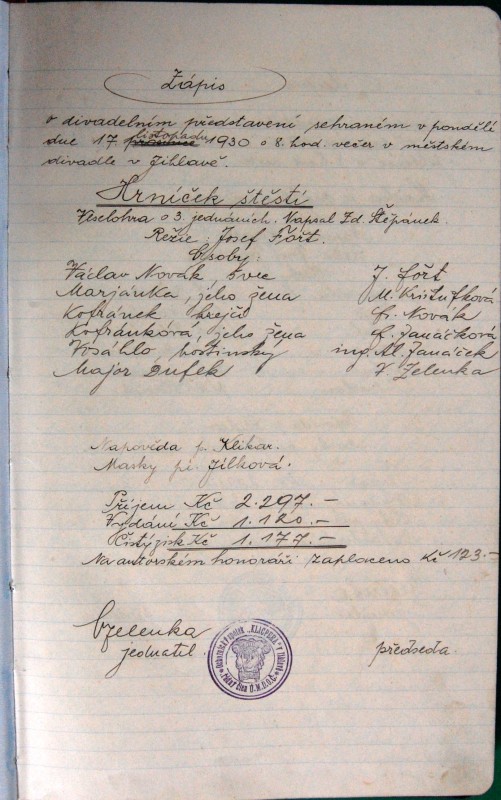 Zápis
o divadelním představení sehraném v pondělí
dne 17. listopadu 1930 o 8. hod. večer v městském
divadle v Jihlavě.
Hrníček štěstí
Veselohra o 3. jednáních. Napsal Zd. Štěpánek.
Režie: Josef Fořt.
Osoby:
Václav Novák, švec J. Fořt
Marjánka, jeho žena M. Krištufková
Kofránek krejčí Novák
Kofránková, jeho žena Janáčková
hostinský ing. Al. Janáček
Major Dufek V. Zelenka
Napověda p. Klikar.
Masky pí. Jílková.
Příjem Kč 2.297.-
Vydání Kč 1.120.-
Čistý zisk Kč 1.177.-
Na autorském honoráři zaplaceno Kč 123.-
Zelenka
jednatel předseda
"KLICPERA" V
Ú.M.D.O.Č.